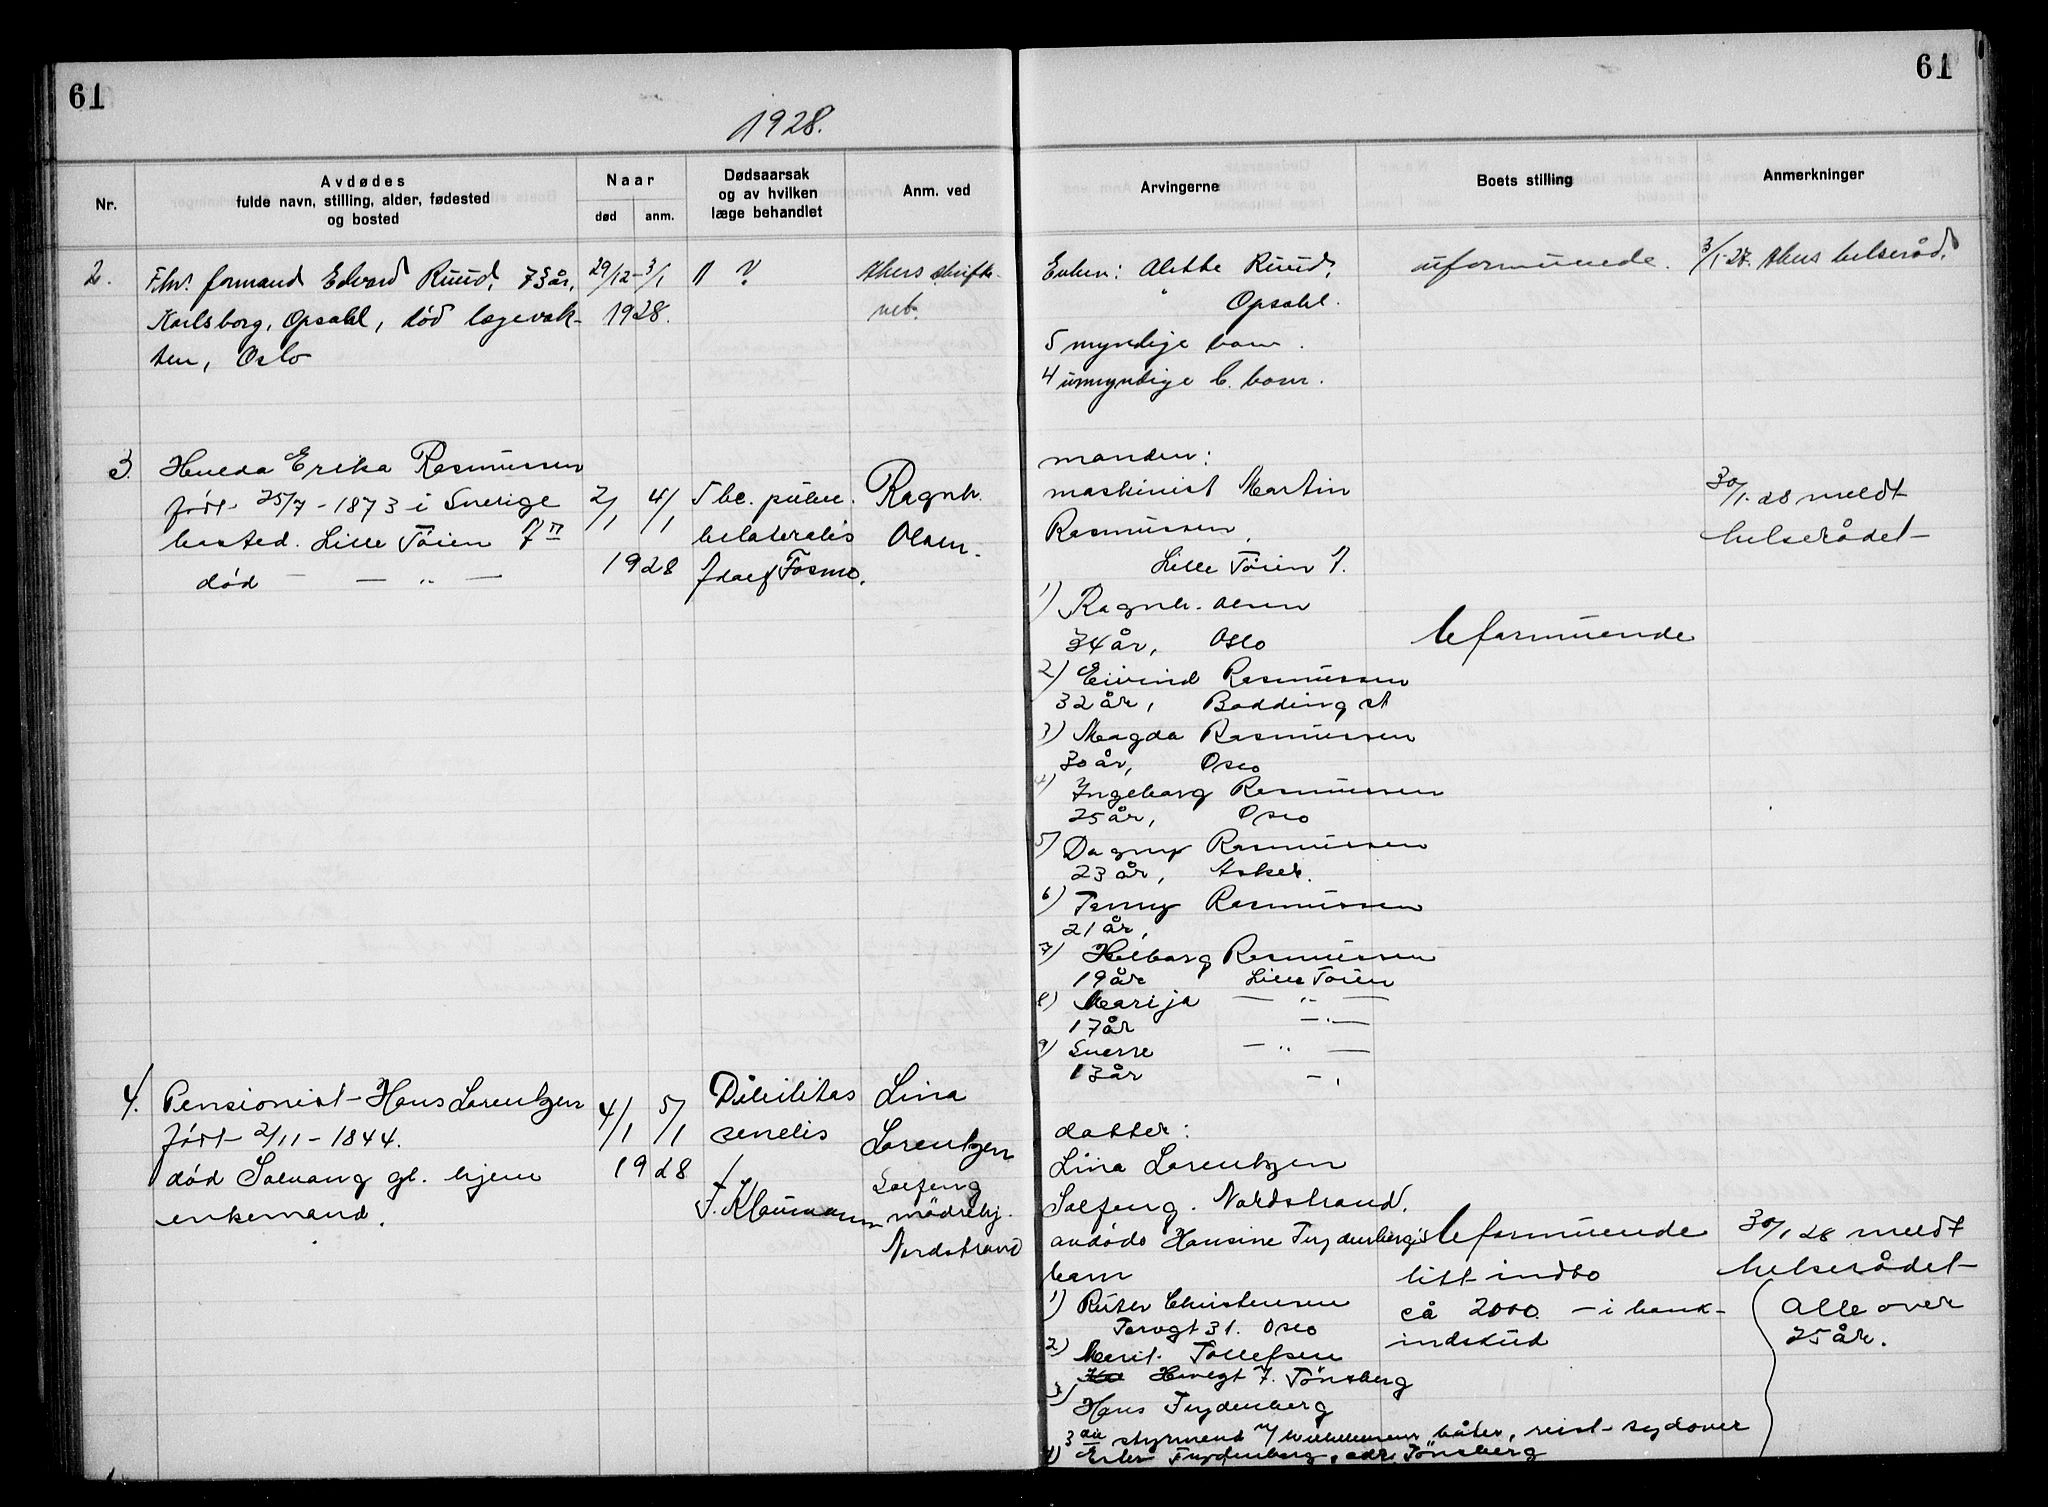 61
61
1928.
Nr.
Avdødes
fulde navn, stilling, alder, fødested
og bosted
Naar
død
anm.
Dødsaarsak
og av hvilken
læge behandlet
Anm. ved
Arvingerne
Boets stilling
Anmerkninger
2.
Fhv. formand Edvard Ruud, 73 år,
Karlsborg, Opsahl, død lægevak-
ten, Oslo
29/12 - 3/1
1928.
?
Akers skifte-
ret.
Enken: Alette Ruud,
Opsahl.
5 myndige barn.
4 umyndige b. barn.
uformuende.
3/1 28. Akers helseråd.
3.
Hulda Erika Rasmussen
født 25/7 - 1873 i Sverige
bosted. Lille Töien 7
død — „ —
2/1 4/1
1928
Tbc. pulm.
bilateralis
Fosmo.
Ragnh.
Olsen.
manden:
maskinist Martin
Rasmussen,
Lille Töien 7.
1) Ragnh. Olsen
34 år, Oslo
2) Eivind Rasmussen
32 år, Boddingst
3) Magda Rasmussen
30 år, Oslo
4) Ingeborg Rasmussen
25 år, Oslo
5) Dagny Rasmussen
23 år, Asker.
6) Jenny Rasmussen
21 år,
7) Holborg Rasmussen
19 år Lille Töien
8) Marija — „ —
17 år — „ —
9) Sverre — „ —
13 år — „
Uformuende
30/1. 28 meldt
helserådet
4.
Pensionist Hans Lorentzen
født 2/11 - 1844.
død Solvang gl. hjem
enkemand.
4/1 5/1
1928
Debilitas
senilis
F. Klaumann
Lina
Lorentzen
Solfeng
mödrehj.
Nordstrand
datter:
Lina Lorentzen
Solfeng. Nordstrand.
avdöde Hansine Frydenbergs
barn
1) Ruter Christensen
Torvgt 31. Oslo
2) Marit. Tollefsen
Havegt 7. Tönsberg
3) Hans Frydenberg
3die styrmand m/ Wilhelmsens båter, reist sydover
4) Frydenberg, adr. Tönsberg
Uformuende
litt indbo
cå 2000 - i bank-
indskud
30/1 28 meldt
helserådet
Alle over
25 år.